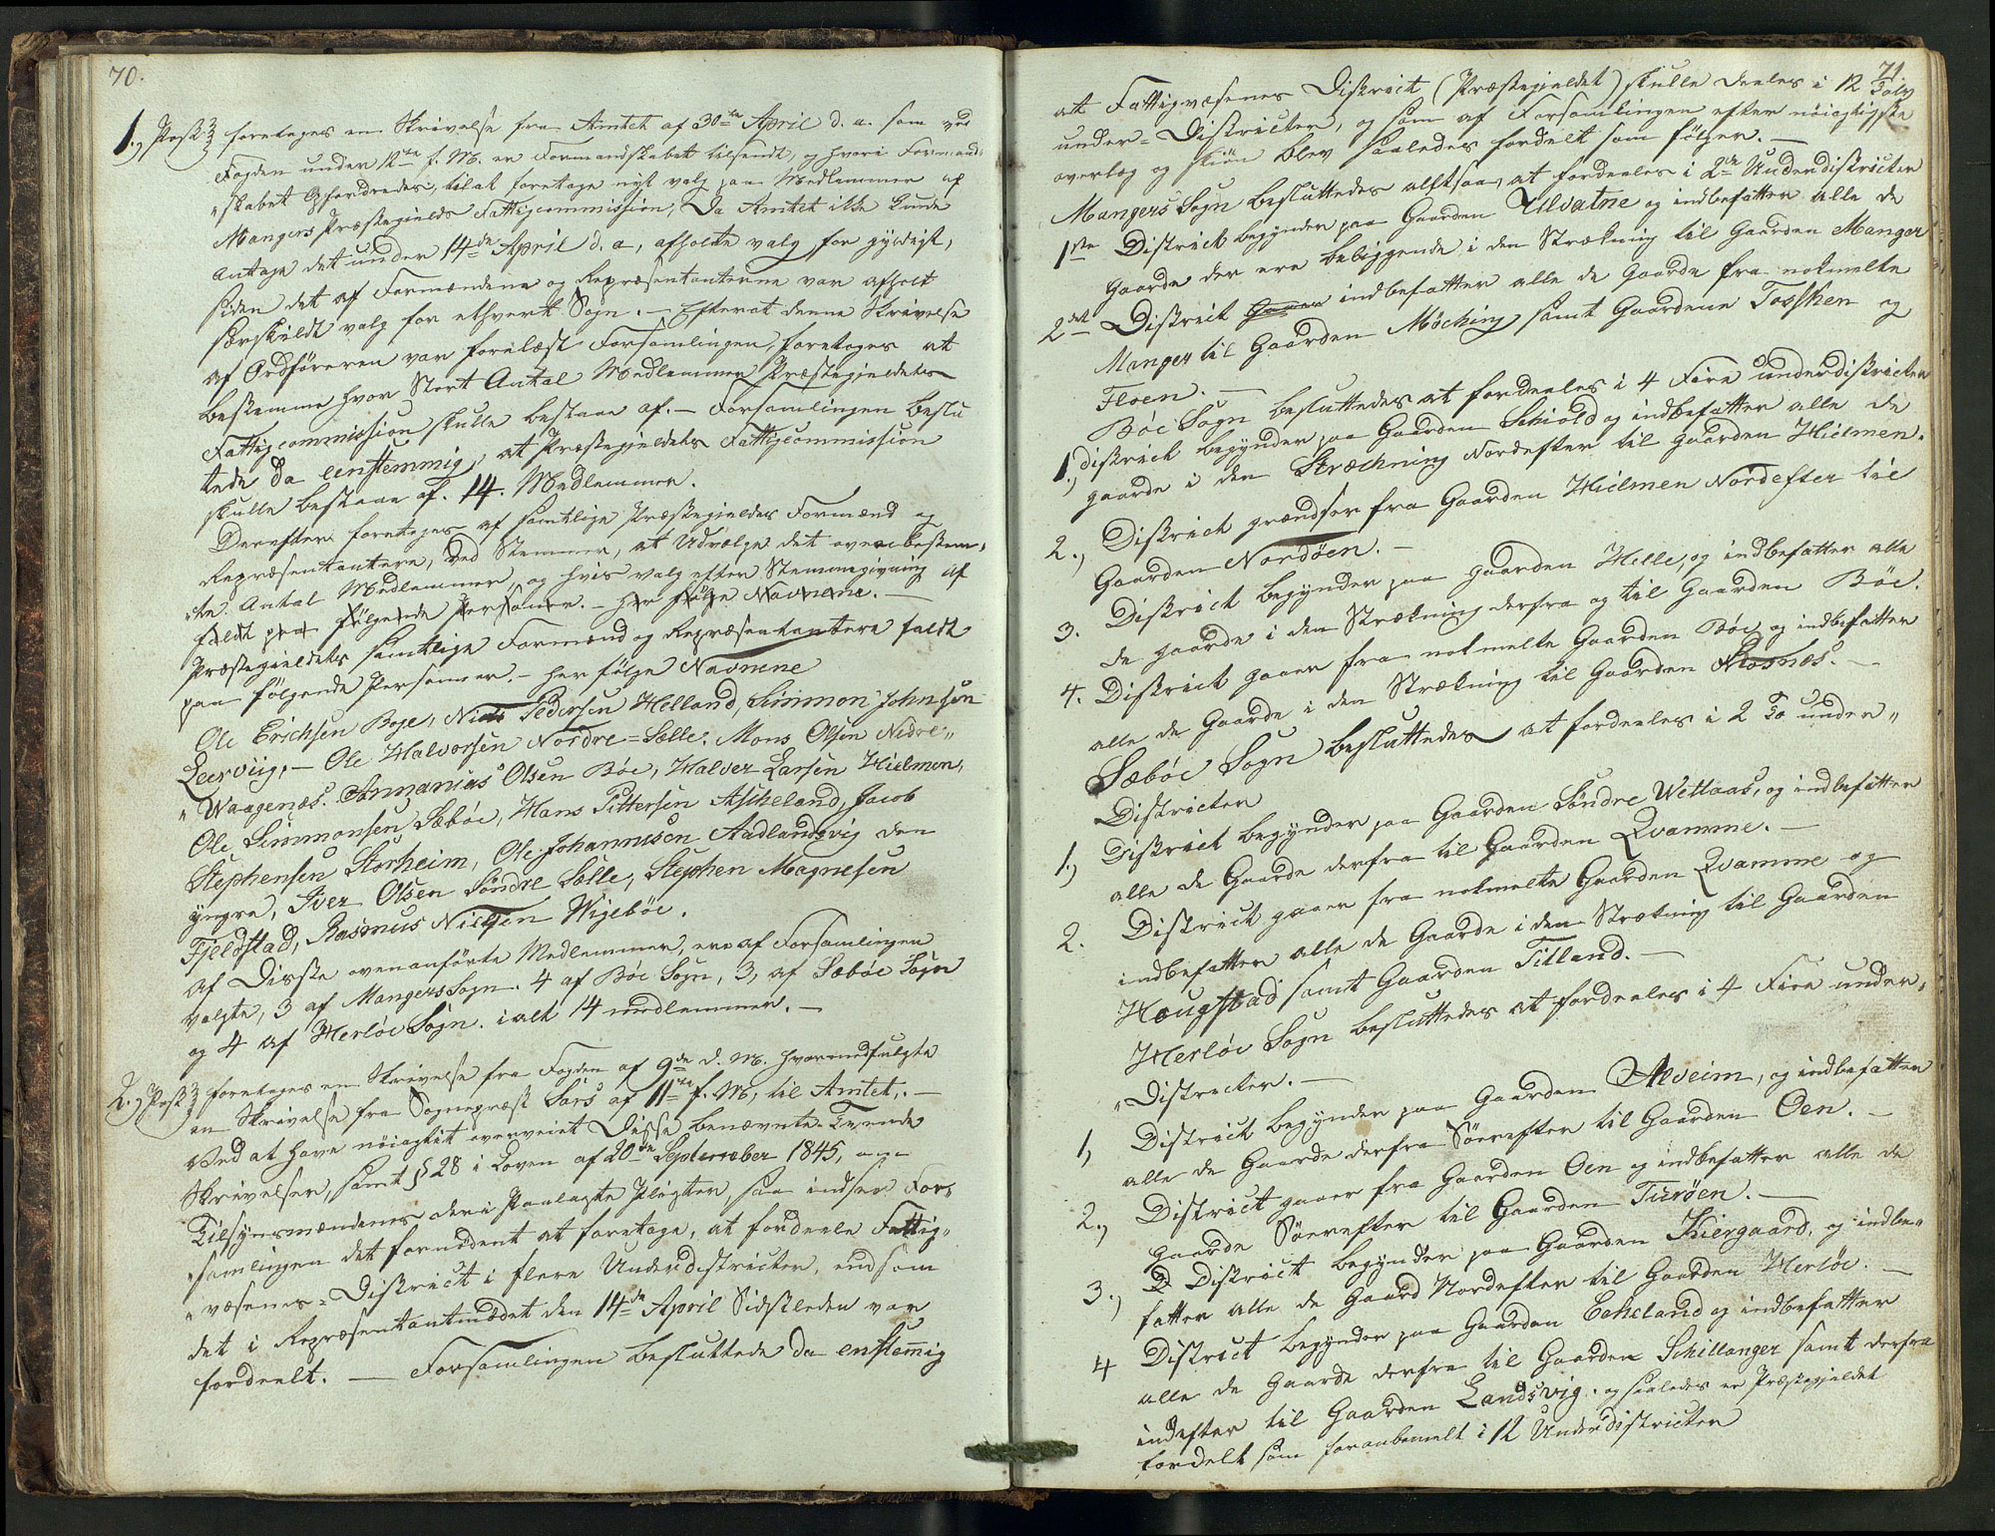 70.
1.) Post foretages en Skrivelse fra Amtet af 30te April d. a. som ved
Fogden under 12te f. M. er Formandskabet tilsendt, og hvori Formand-
"skabet Opfordredes, til at foretage nyt valg paa Medlemmer af
Mangers Præstegjelds Fattigcommission, Da Amtet ikke kunde
Antage det under 14de April d. a, afholdte valg for gyldigt,
siden det af Formændene og Repræsentanterne var afholt
særskildt valg for ethvert Sogn. – Efterat denne Skrivelse
af Ordføreren var forelæst Forsamlingen, foretoges at
bestemme hvor Stort Antal Medlemmer Præstegjeldets
Fattigcommission skulle bestaae af. – Forsamlingen beslu
tede da eenstemmig, at Præstegjeldets Fattigcommission
skulle bestaae af. 14. Medlemmer.
Derefter foretoges af samtlige Præstegjeldes Formænd og
Repræsentantere, ved Stemmer, at Udvælge det ovenbestem-
te Antal Medlemmer, og hvis valg efter Stemmegivning af
faldt paa følgende Personer. – her følge Navnene. –
Præstegieldets samtlige Formænd og Repræsentantere faldt
paa følgende Personer. – her følge Navnene
Ole Erichsen Boge, Niels Pedersen Helland, Simmon Johnsen
Leerviig, – Ole Halvorsen Nordre=Sælle. Mons Olsen Nedre"
"Waagenæs. Annanias Olsen Böe, Halver Larsen Hielmen,
Ole Simmonsen Sæböe, Hans Pittersen Askeland, Jacob
Stephensen Storheim, Ole Johannisen Aadlandsvig den
yngre, Iver Olsen Söndre Sælle, Stephen Magnesen
Fjeldstad, Rasmus Nielsen Wigeböe.
Af Disse ovenanførte Medlemmer, ere af Forsamlingen
valgte, 3 af Mangers Sogn. 4 af Böe Sogn, 3, af Sæböe Sogn
og 4 af Herlöe Sogn. ialt 14 medlemmer. –
2.) Post foretoges en Skrivelse fra Fogden af 9de d. M. hvormedfulgte
en Skrivelse fra Sognepræst Sars af 11te f. M, til Amtet, –
Ved at have nöiagtit overveiet Disse benævnte Tvende
Skrivelser, samt § 28 i Loven af 20de September 1845, om
Tilsynsmændenes deri Paalagte Pligter, saa indser For-
"samlingen det fornödent at foretage, at fordeele Fattig"
"væsenes=District i flere Underdistricter, end som
det i Repræsentantmødet den 14de April Sidstleden var
fordeelt. – Forsamlingen besluttede da enstemig
71.
at Fattigvæsenes District (Præstegjeldet) skulle deeles i 12 Tolv
under=Districter, og som af Forsamlingen efter nöiagtigste
overlæg og skiön blev saaledes fordelt som følger. –
Mangers Sogn besluttedes altsaa, at fordeeles i 2de Underdistricter
1ste District begynder paa Gaarden Ulvatne og indbefatter alle de
Gaarde der ere beliggende i den Strækning til Gaarden Manger
2det District Gaaer indbefatter alle de Gaarde fra notmelte
Manger til Gaarden Möching samt Gaardene Tosken og
Floen. –
Böe Sogn besluttedes at fordeeles i 4 Fire underdistricter
1.) District begynder paa Gaarden Schiold og indbefatter alle de
gaarde i den Strækning Nordefter til gaarden Hielmen.
2., District grændser fra Gaarden Hielmen Nordefter til
Gaarden Nordöen. –
3. District begynder paa gaarden Helle, og indbefatter alle
de gaarde i den Strækning derfra og til Gaarden Böe.
4. District gaaer fra notmelte Gaarden Böe, og indbefatter
alle de Gaarde i den Strækning til Gaarden Næsnæs. –
Sæböe Sogn besluttedes at fordeeles i 2 To under"
Districter
1.) District begynder paa Gaarden Söndre Wettaas, og indbefatter
alle de Gaarde derfra til Gaarden Qvamme. –
2. District gaaer fra notmelte Gaarden Qvamme og
indbefatter alle de Gaarde i den Strækning til Gaarden
Hougstad samt Gaarden Titland. –
Herlöe Sogn besluttedes at fordeeles i 4 Fire under"
"Districter. –
1, District begynder paa Gaarden Alveim, og indbefatter
alle de Gaarde derfra Söerefter til Gaarden Oen. –
2., District gaaer fra Gaarden Oen og indbefatter alle de
gaarde Söerefter til Gaarden Turöen. –
3., D District begynder paa Gaarden Kiergaard, og indbe"
fatter alle de Gaard Nordefter til Gaarden Herlöe. –
4 District begynder paa Gaarden Eckeland og indbefatter
alle de Gaarde derfra til Gaarden Schillanger samt derfra
indefter til Gaarden Landsvig. og saaledes er Præstegjeldet
fordelt som foranbemelt i 12 Underdistricter